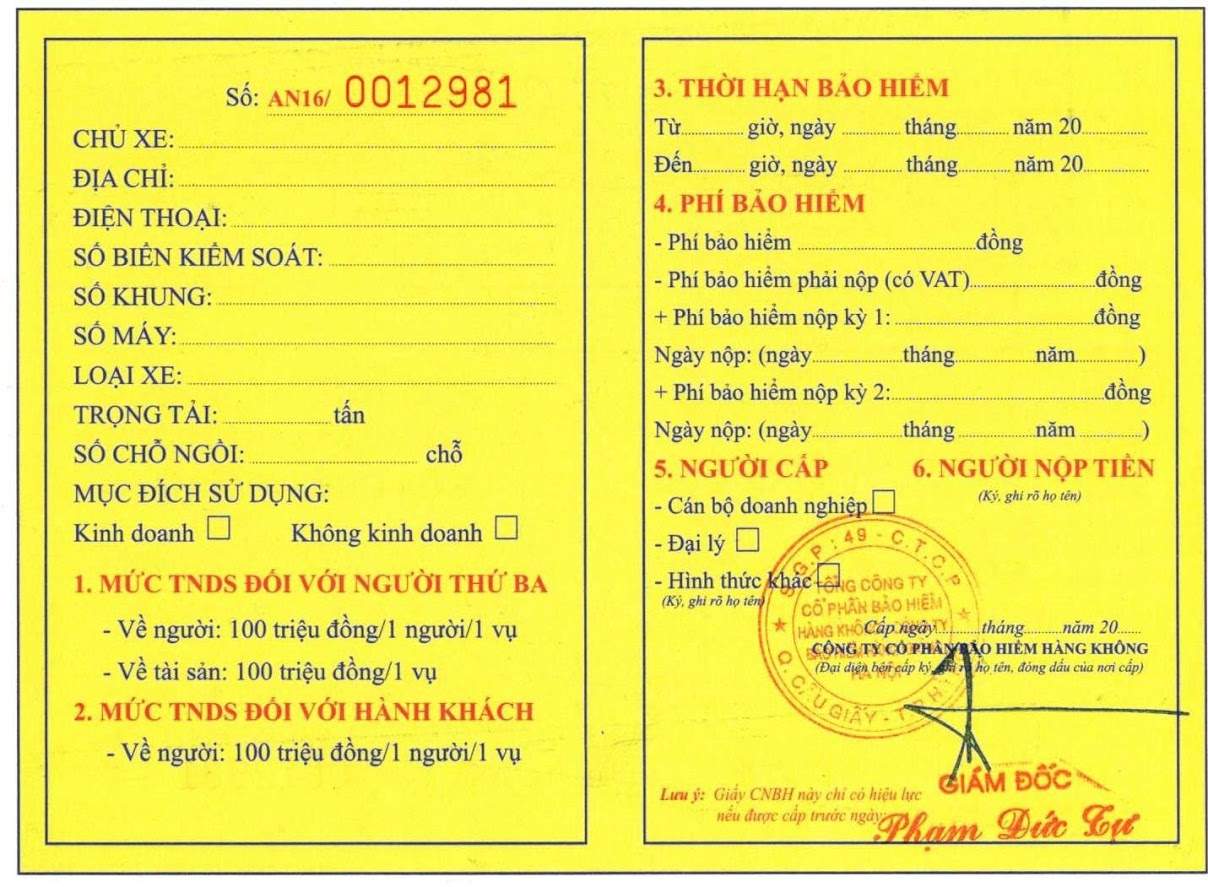 Số: AN16/ 0012981
CHỦ XE:
ĐỊA CHỈ:
ĐIỆN THOẠI:
SỐ BIỂN KIỂM SOÁT:
SỐ KHUNG:
SỐ MÁY:
LOẠI XE:
TRỌNG TẢI: tấn
SỐ CHỖ NGỒI: chỗ
MỤC ĐÍCH SỬ DỤNG:
Kinh doanh Không kinh doanh
1. MỨC TNDS ĐỐI VỚI NGƯỜI THỨ BA
- Về người: 100 triệu đồng/1 người/1 vụ
- Về tài sản: 100 triệu đồng/1 vụ
2. MỨC TNDS ĐỐI VỚI HÀNH KHÁCH
- Về người: 100 triệu đồng/1 người/1 vụ
3. THỜI HẠN BẢO HIỂM
Từ giờ, ngày tháng năm 20
Đến giờ, ngày tháng năm 20
4. PHÍ BẢO HIỂM
- Phí bảo hiểm đồng
- Phí bảo hiểm phải nộp (có VAT) đồng
+ Phí bảo hiểm nộp kỳ 1: đồng
Ngày nộp: (ngày tháng năm )
+ Phí bảo hiểm nộp kỳ 2: đồng
Ngày nộp: (ngày tháng năm )
5. NGƯỜI CẤP 6. NGƯỜI NỘP TIỀN
(Ký, ghi rõ họ tên)
- Cán bộ doanh nghiệp
- Đại lý
- Hình thức khác
(Ký, ghi rõ họ tên)
Cấp ngày tháng năm 20
CÔNG TY CỔ PHẦN BẢO HIỂM HÀNG KHÔNG
(Đại diện bên cấp ký, ghi rõ họ tên, đóng dấu của nơi cấp)
S.G.P: 49 - C.T.C.P
TỔNG CÔNG TY
CỔ PHẦN BẢO HIỂM
HÀNG KHÔNG CÔNG TY
HÀ NỘI
Q. CẦU GIẤY
GIÁM ĐỐC
Phạm Đức Tự
Lưu ý: Giấy CNBH này chỉ có hiệu lực
nếu được cấp trước ngày: